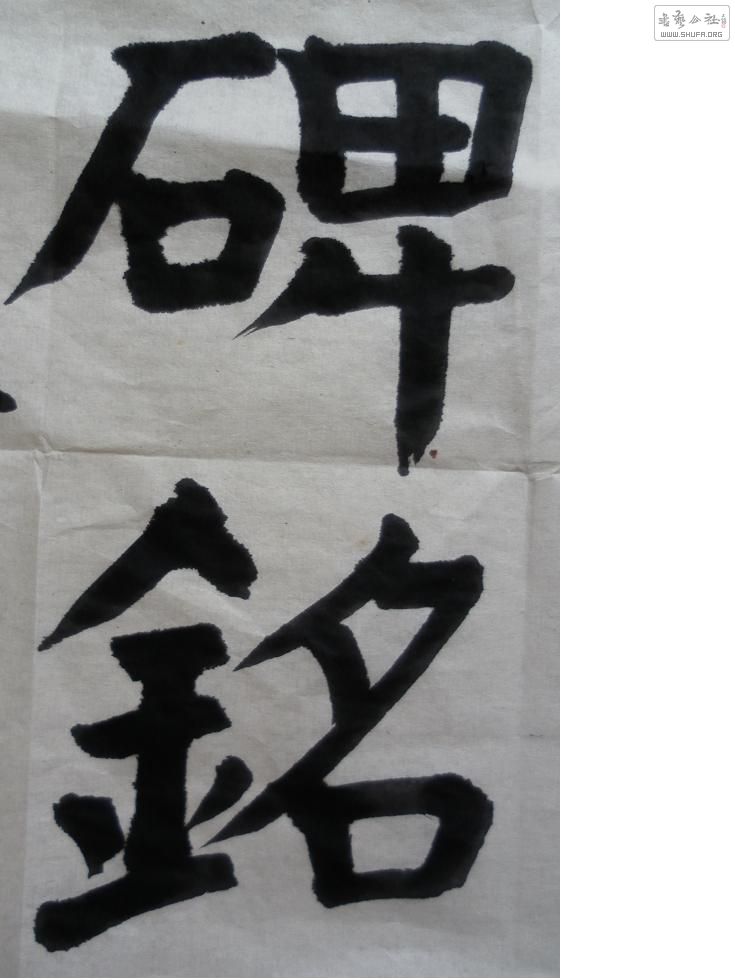 碑
銘
書藝公社
WWW.SHUFA.ORG